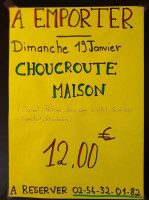 A EMPORTER
Dimanche 19 Janvier
CHOUCROUTE
MAISON
12,00 €
A RESERVER 02-54-32-01-82